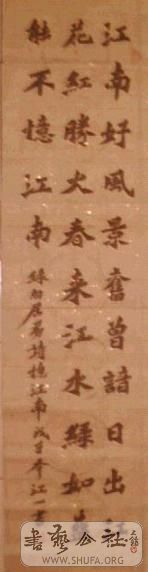 江南好風景舊曾諳日出江
花紅勝火春来江水綠如
能不憶江南 錄白居易詩憶江南
書藝公社
WWW.SHUFA.ORG